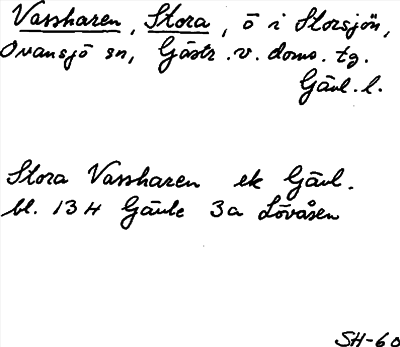 Vassharen, Stora, ö i Storsjön,
Ovansjö sn, Gästr. v. doms. tg.
Gävl. l.
Stora Vassharen ek Gävl.
bl. 13 H Gävle 3a Lövåsen
SH-60